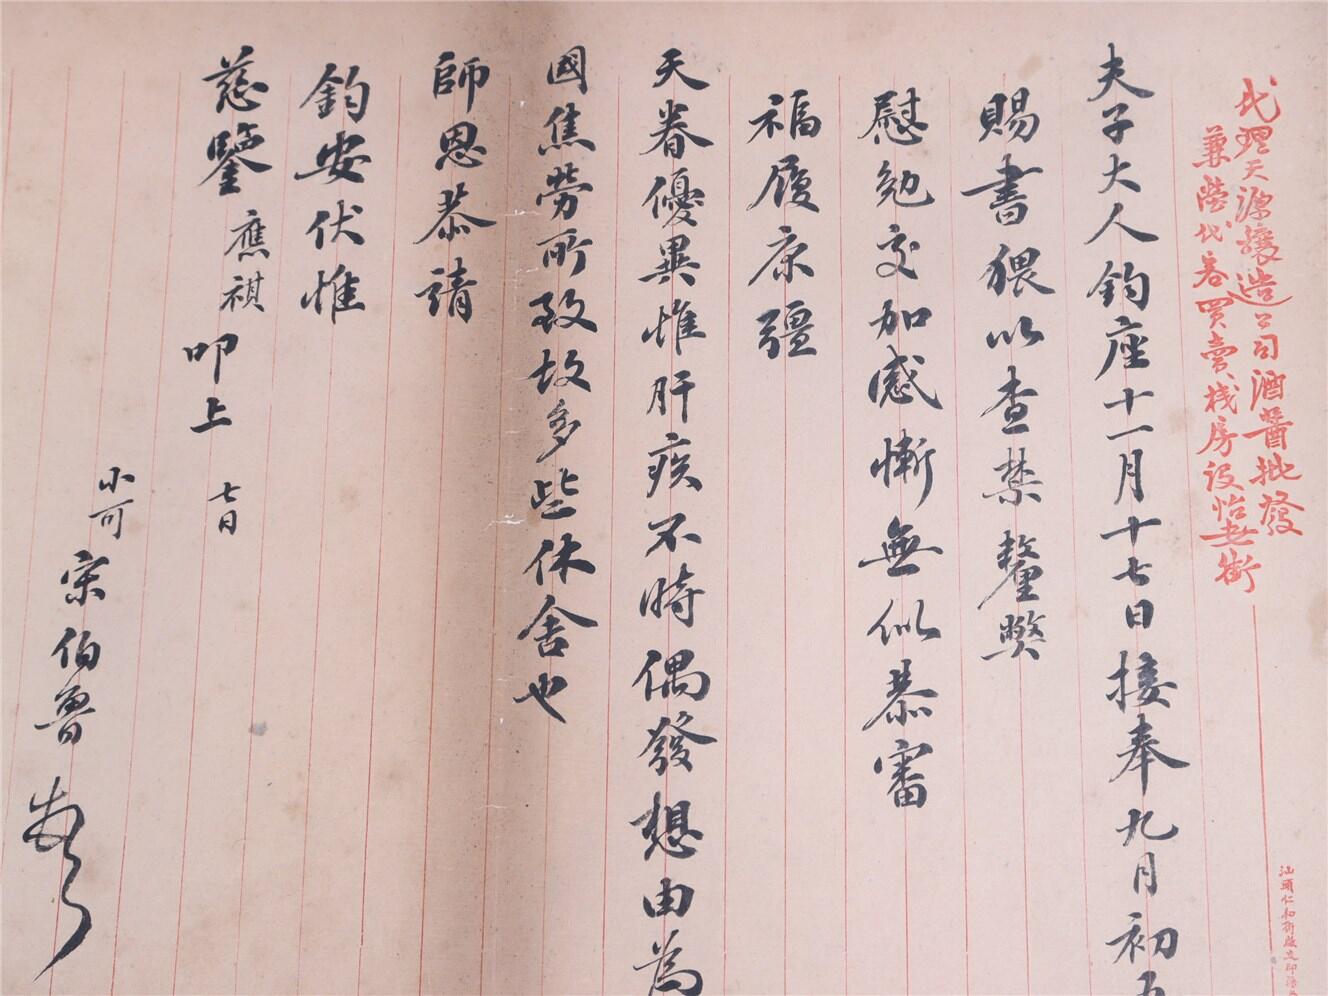 代理天源釀造公司酒醬批發
兼營代客買賣棧房設怡老街
夫子大人鈞座十一月十七日接奉九月初五
賜書猥以查禁釐弊
慰勉交加感慚無似恭審
福履康彊
天眷優異惟肝疾不時偶發想由為
國焦勞所致故多些休舍也
師恩恭請
鈞安伏惟
慈鑒 應祺叩上 七日
小可宋伯魯
汕頭仁和街